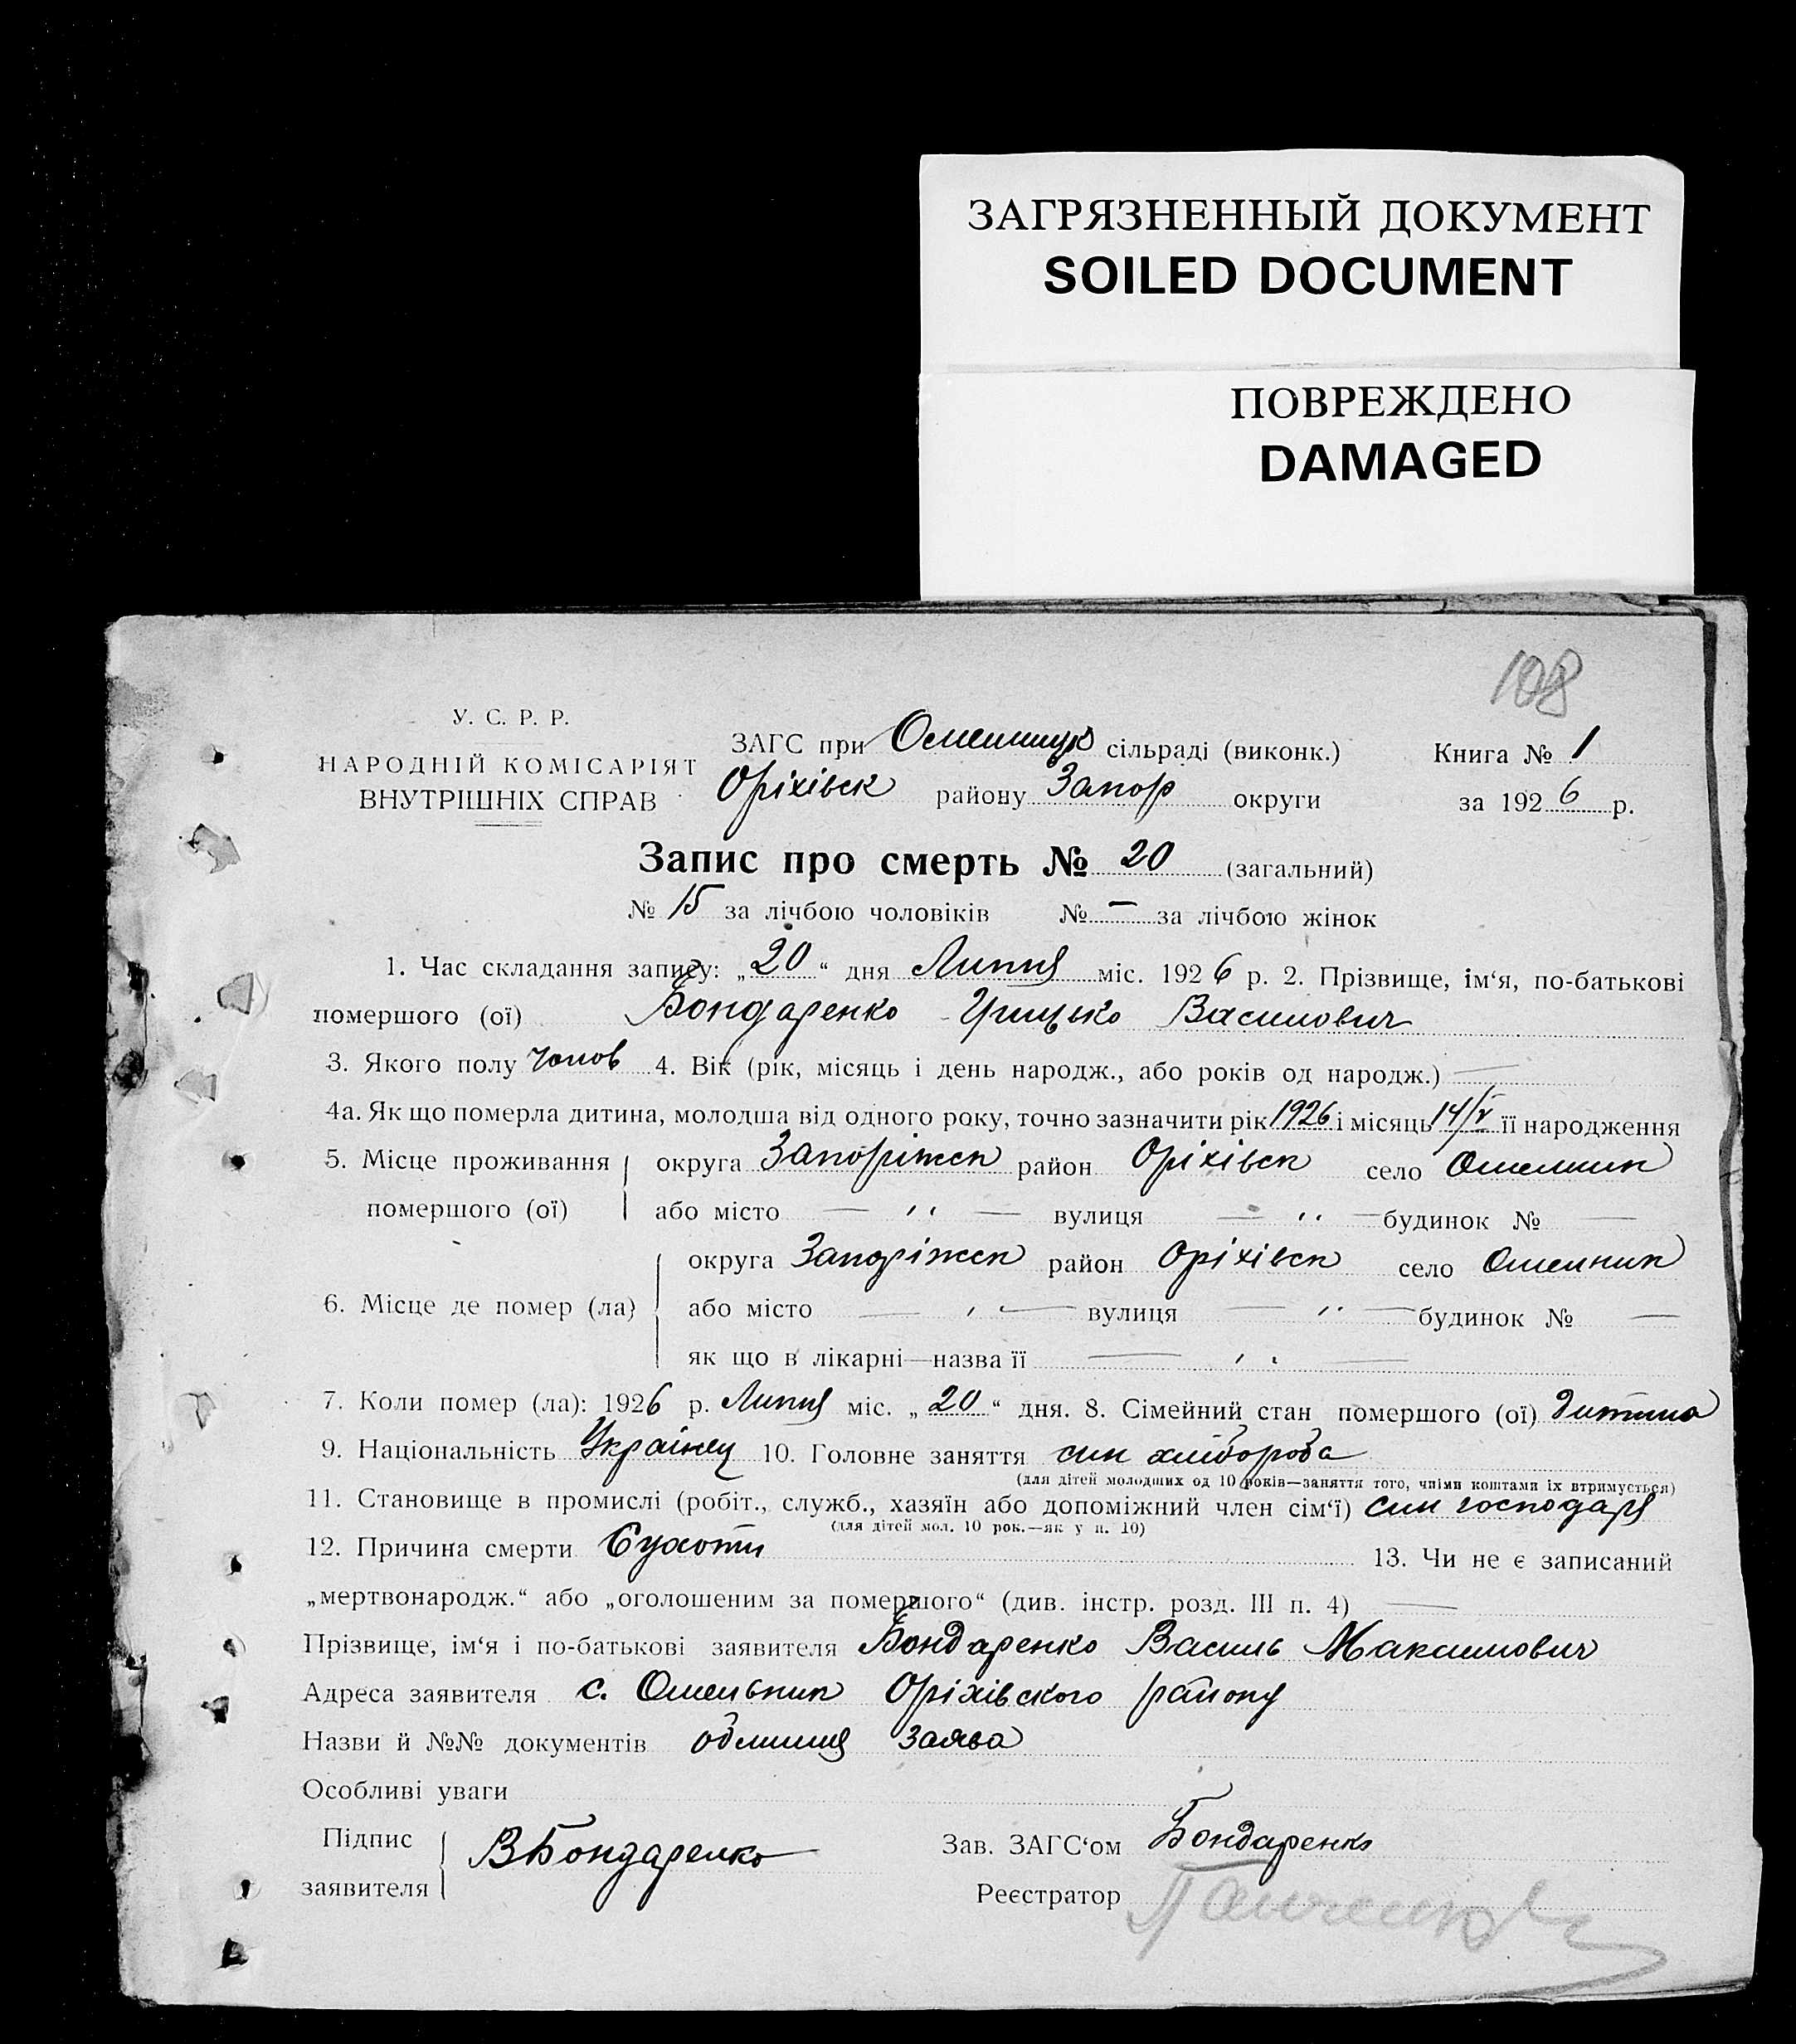 ЗАГРЯЗНЕННЫЙ ДОКУМЕНТ
SOILED DOCUMENT
ПОВРЕЖДЕНО
DAMAGED
108
У. С. Р. Р.
НАРОДНІЙ КОМІСАРІЯТ
ВНУТРІШНІХ СПРАВ
ЗАГС при сільраді (виконк.) Книга № 1
Оріхівськ району Запор округи за 1926 р.
Запис про смерть № 20 (загальний)
№ 15 за лічбою чоловіків № — за лічбою жінок
1. Час складання запису: „20“ дня Липня міс. 1926 р. 2. Прізвище, ім‘я, по-батькові
помершого (ої) Бондаренко Грицько Васильович
3. Якого полу чолов 4. Вік (рік, місяць і день народж., або років од народж.) —
4а. Як що померла дитина, молодша від одного року, точно зазначити рік 1926 і місяць 14/V її народження
5. Місце проживання округа Запоріжск район Оріхівск село Омельник
помершого (ої) або місто — ,, — вулиця — ,, — будинок № —
округа Запоріжск район Оріхівск село Омельник
6. Місце де помер (ла) або місто — ,, — вулиця — ,, — будинок № —
як що в лікарні—назва її — ,, —
7. Коли помер (ла): 1926 р. Липня міс. „20“ дня. 8. Сімейний стан помершого (ої) дитина
9. Національність Українец 10. Головне заняття син хлібороба
(для дітей молодших од 10 років—заняття того, чиїми коштами їх втримується)
11. Становище в промислі (робіт., служб., хазяїн або допоміжний член сім‘ї) син господаря
(для дітей мол. 10 рок.—як у п. 10)
12. Причина смерти Сухоти 13. Чи не є записаний
„мертвонародж.“ або „оголошеним за помершого“ (див. інстр. розд. III п. 4) —
Прізвище, ім‘я і по-батькові заявителя Бондаренко Василь Максимович
Адреса заявителя с. Омельник Оріхівського району
Назви й №№ документів заява
Особливі уваги
Підпис
заявителя ВБондаренко
Зав. ЗАГС‘ом Бондаренко
Реєстратор